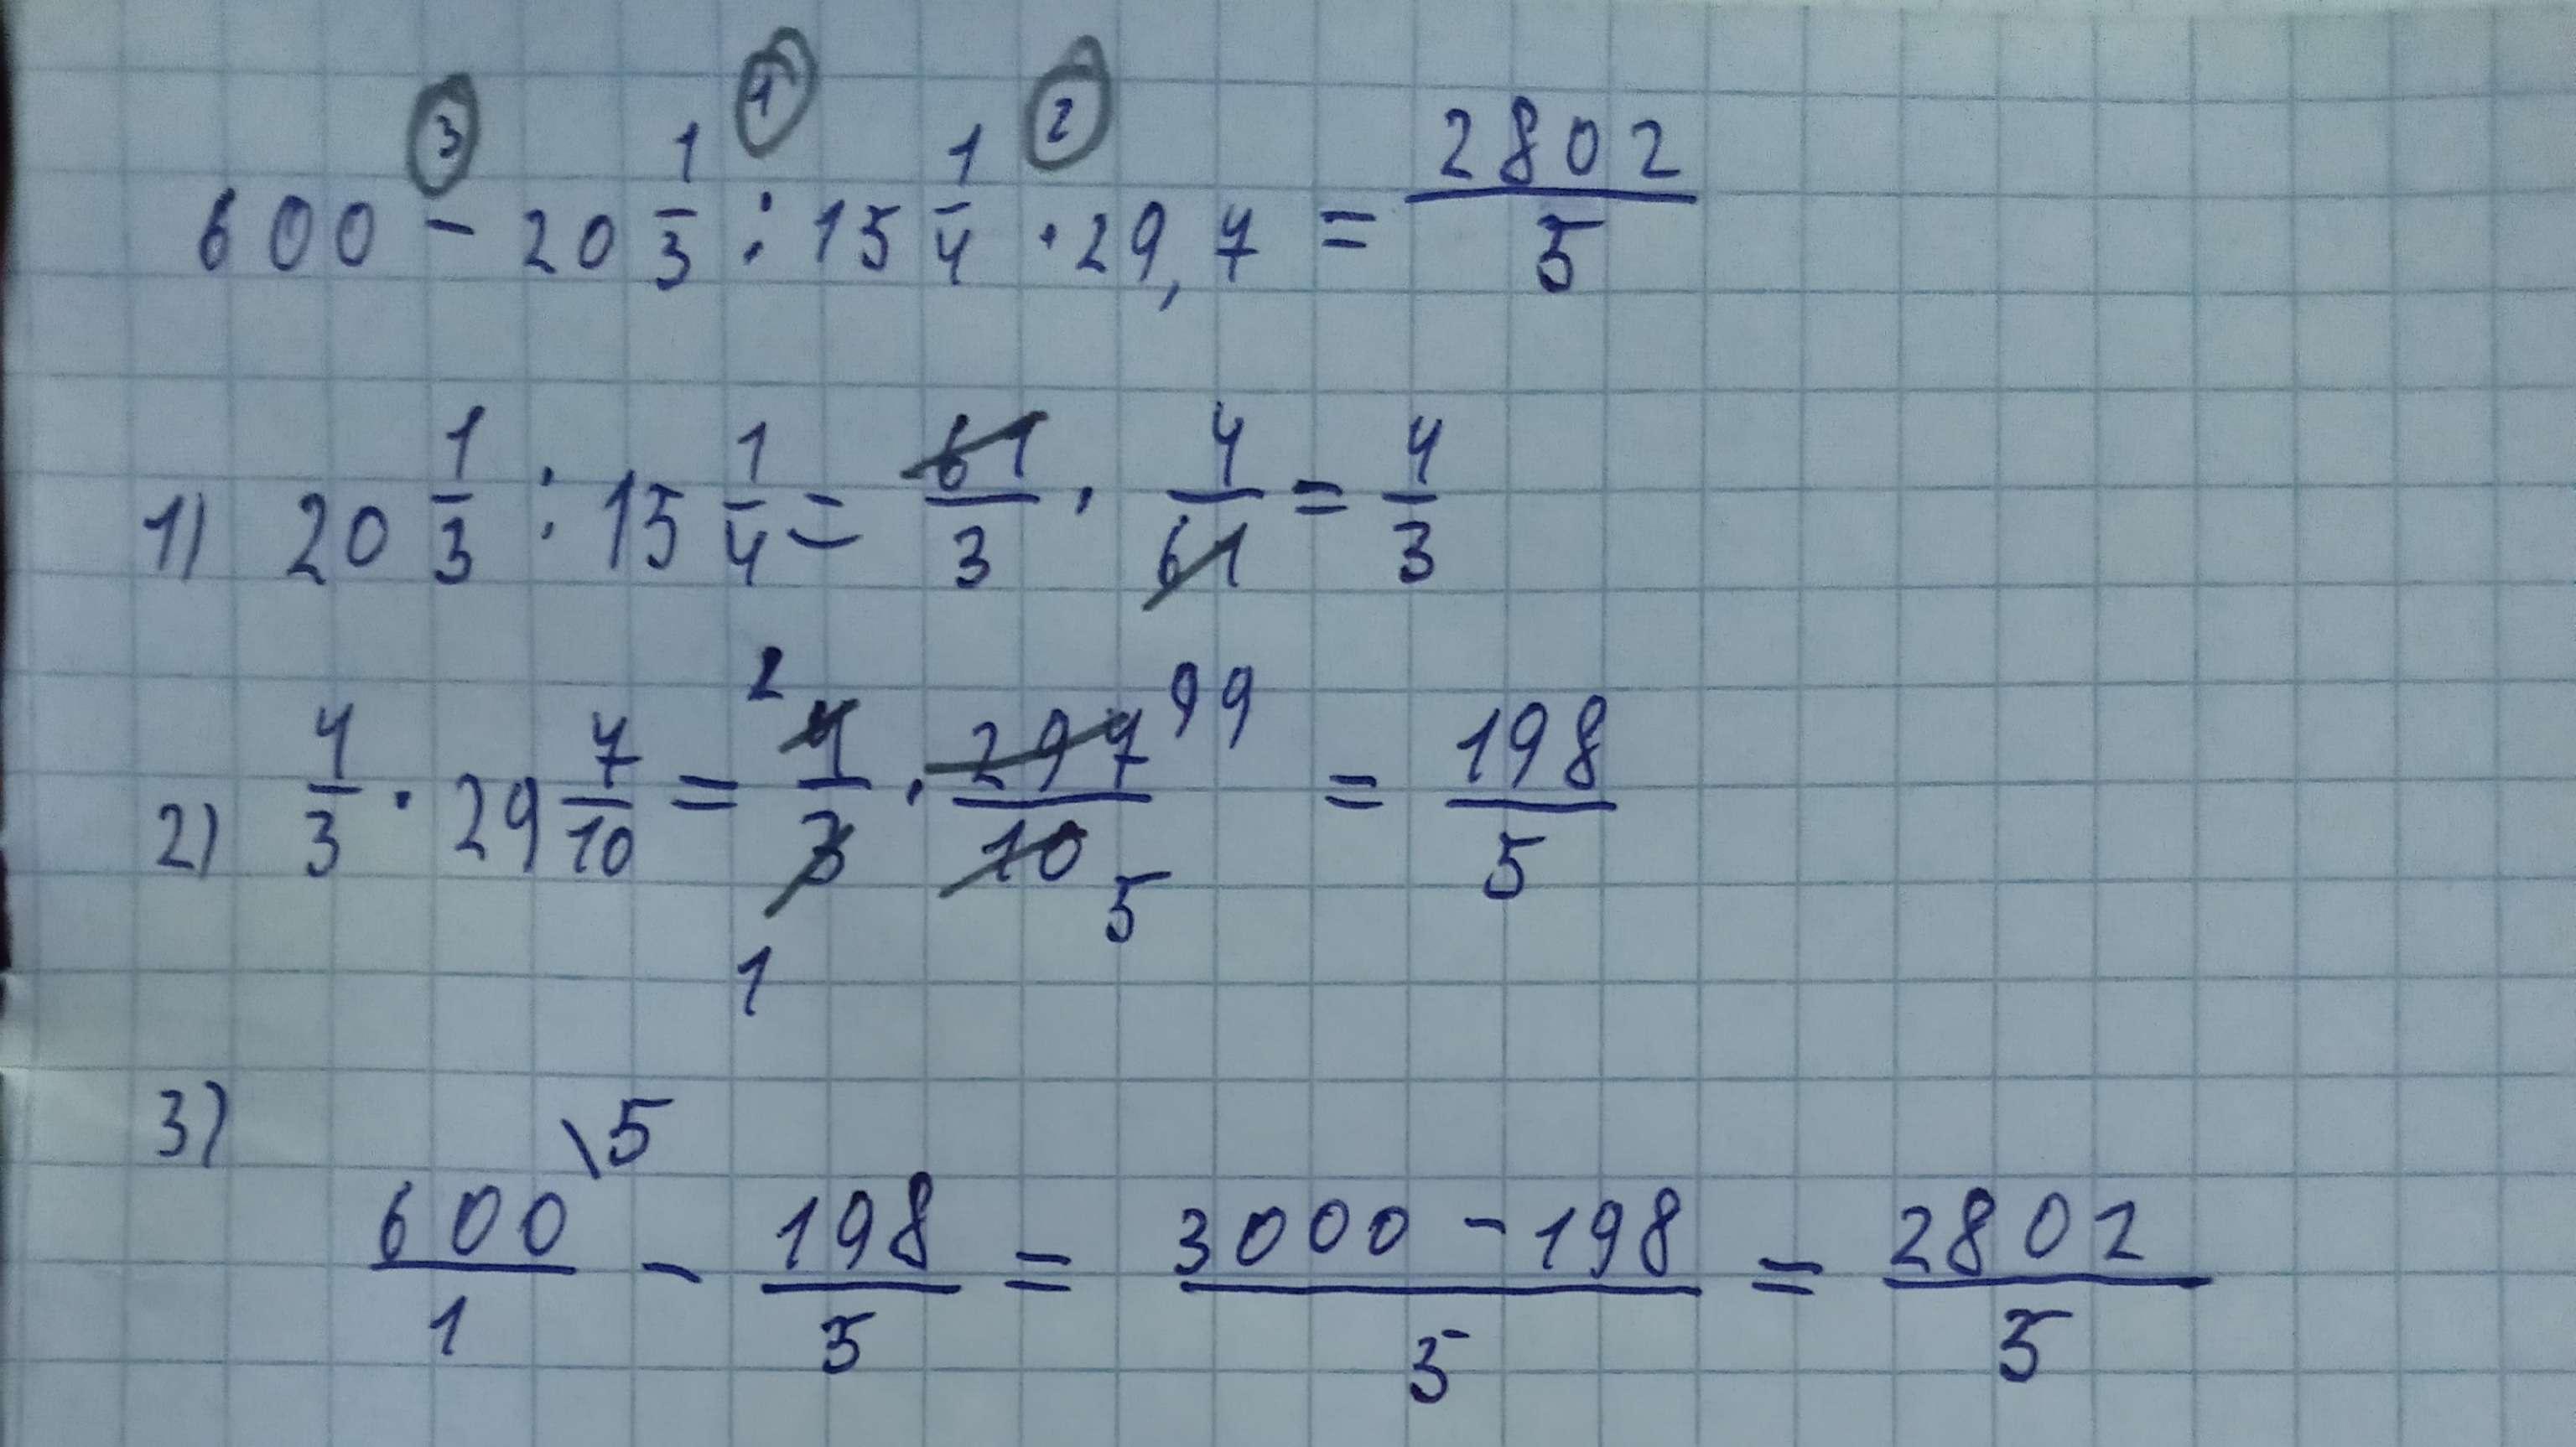 ③ ① ②
600 - 20 1/3 : 15 1/4 · 29,7 = 2802/5
1) 20 1/3 : 15 1/4 = 61/3 · 4/61 = 4/3
2) 4/3 · 29 7/10 = 2 4/3 1 · 297/10 99 5 = 198/5
3) 600/1 \5 - 198/5 = 3000 - 198/5 = 2802/5